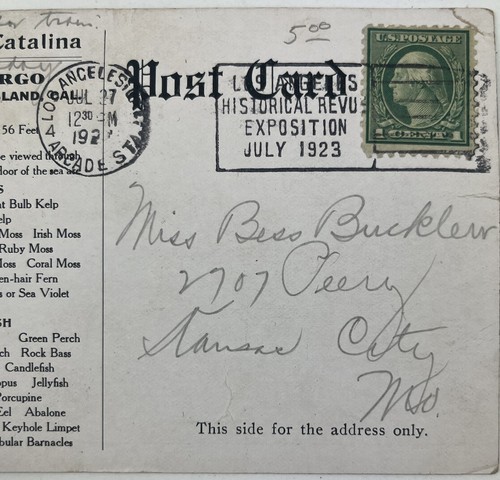 5.00
Catalina
Post Card
U.S. POSTAGE
1 CENT 1
LOS ANGELES
JUL 27
12 30 PM
192
4
ARCADE STA
LOS ANGELES
HISTORICAL REVUE
EXPOSITION
JULY 1923
RGO
ISLAND, CAL.
56 Feet
e viewed through
loor of the sea are
S
nt Bulb Kelp
elp
Moss Irish Moss
Ruby Moss
Moss Coral Moss
en-hair Fern
s or Sea Violet
SH
Green Perch
ch Rock Bass
Candlefish
opus Jellyfish
Porcupine
Eel Abalone
Keyhole Limpet
bular Barnacles
Miss Bess Bucklew
2707 Peery
Kansas City
Mo.
This side for the address only.